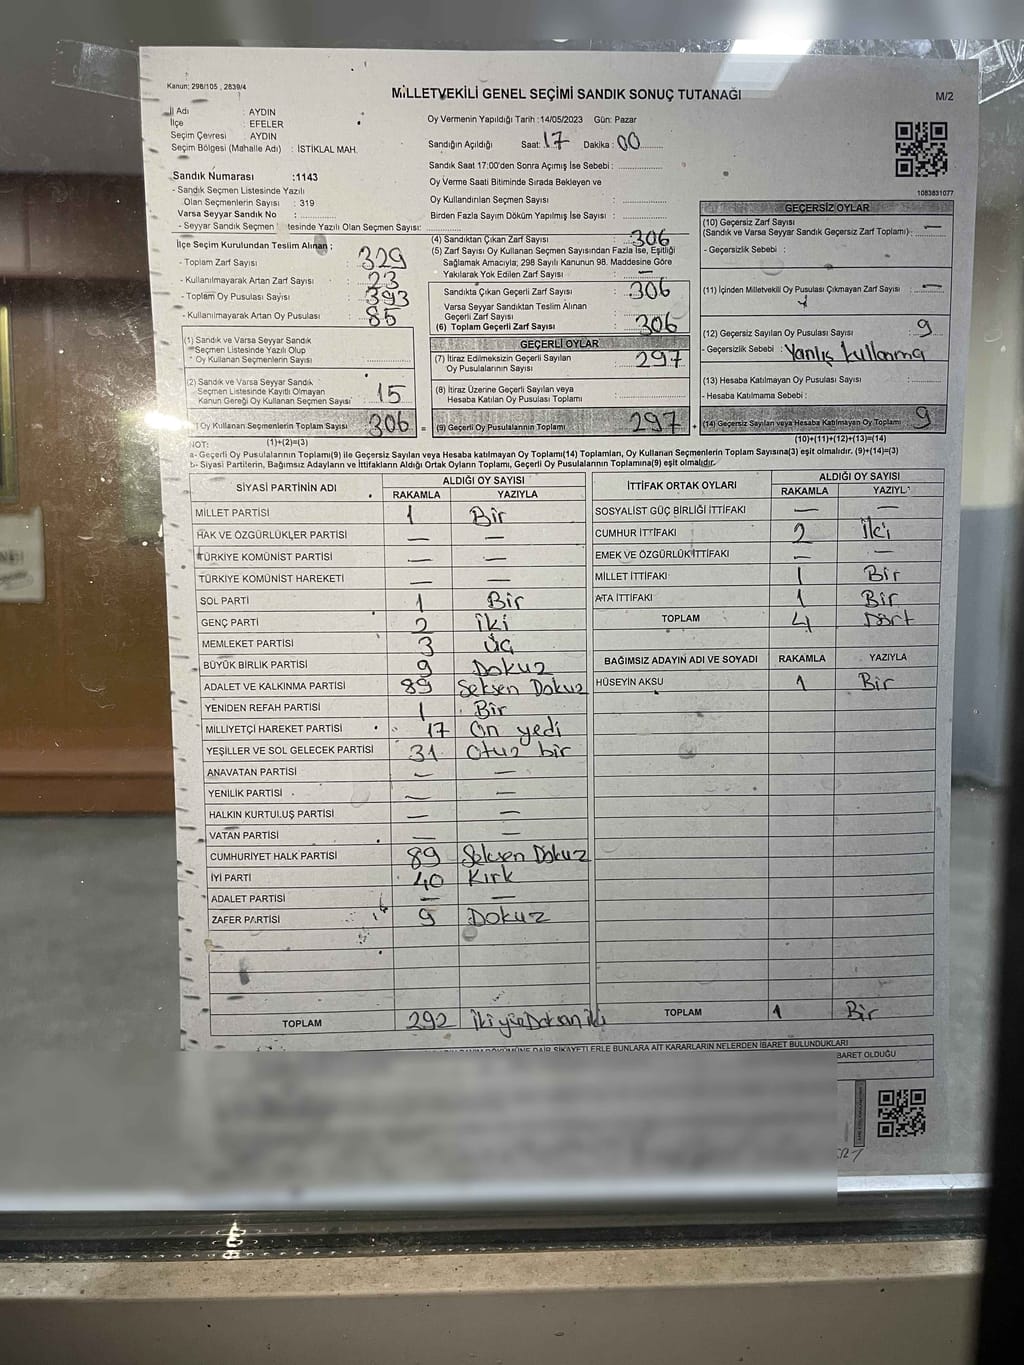 Kanun: 298/105 , 2839/4
MİLLETVEKİLİ GENEL SEÇİMİ SANDIK SONUÇ TUTANAĞI
M/2
İl Adı : AYDIN
İlçe : EFELER
Seçim Çevresi : AYDIN
Seçim Bölgesi (Mahalle Adı) : İSTİKLAL MAH.
Oy Vermenin Yapıldığı Tarih :14/05/2023 Gün: Pazar
Sandığın Açıldığı Saat: 17 Dakika: 00
Sandık Saat 17:00'den Sonra Açımış İse Sebebi :
Oy Verme Saati Bitiminde Sırada Bekleyen ve
Oy Kullandırılan Seçmen Sayısı :
Birden Fazla Sayım Döküm Yapılmış İse Sayısı :
1083831077
Sandık Numarası :1143
- Sandık Seçmen Listesinde Yazılı
Olan Seçmenlerin Sayısı : 319
Varsa Seyyar Sandık No :
- Seyyar Sandık Seçmen tesinde Yazılı Olan Seçmen Sayısı:
İlçe Seçim Kurulundan Teslim Alınan ;
- Toplam Zarf Sayısı : 329
- Kullanılmayarak Artan Zarf Sayısı : 23
- Toplam Oy Pusulası Sayısı : 393
- Kullanılmayarak Artan Oy Pusulası : 85
(1) Sandık ve Varsa Seyyar Sandık
Seçmen Listesinde Yazılı Olup
Oy Kullanan Seçmenlerin Sayısı :
(2) Sandık ve Varsa Seyyar Sandık
Seçmen Listesinde Kayıtlı Olmayan
Kanun Gereği Oy Kullanan Seçmen Sayısı : 15
Oy Kullanan Seçmenlerin Toplam Sayısı 306
(1)+(2)=(3)
(4) Sandıktan Çıkan Zarf Sayısı : 306
(5) Zarf Sayısı Oy Kullanan Seçmen Sayısından Fazla İse, Eşitliği
Sağlamak Amacıyla; 298 Sayılı Kanunun 98. Maddesine Göre
Yakılarak Yok Edilen Zarf Sayısı : —
Sandıkta Çıkan Geçerli Zarf Sayısı : 306
Varsa Seyyar Sandıktan Teslim Alınan
Geçerli Zarf Sayısı :
(6) Toplam Geçerli Zarf Sayısı : 306
GEÇERLİ OYLAR
(7) İtiraz Edilmeksizin Geçerli Sayılan
Oy Pusulalarının Sayısı : 297
(8) İtiraz Üzerine Geçerli Sayılan veya
Hesaba Katılan Oy Pusulası Toplamı :
= (9) Geçerli Oy Pusulalarının Toplamı 297 +
GEÇERSİZ OYLAR
(10) Geçersiz Zarf Sayısı
(Sandık ve Varsa Seyyar Sandık Geçersiz Zarf Toplamı) : —
- Geçersizlik Sebebi :
(11) İçinden Milletvekili Oy Pusulası Çıkmayan Zarf Sayısı : —
(12) Geçersiz Sayılan Oy Pusulası Sayısı : 9
- Geçersizlik Sebebi : Yanlış kullanma
(13) Hesaba Katılmayan Oy Pusulası Sayısı :
- Hesaba Katılmama Sebebi :
(14) Geçersiz Sayılan veya Hesaba Katılmayan Oy Toplamı 9
(10)+(11)+(12)+(13)=(14)
NOT:
a- Geçerli Oy Pusulalarının Toplamı(9) ile Geçersiz Sayılan veya Hesaba katılmayan Oy Toplamı(14) Toplamları, Oy Kullanan Seçmenlerin Toplam Sayısına(3) eşit olmalıdır. (9)+(14)=(3)
b- Siyasi Partilerin, Bağımsız Adayların ve İttifakların Aldığı Ortak Oyların Toplamı, Geçerli Oy Pusulalarının Toplamına(9) eşit olmalıdır.
SİYASİ PARTİNİN ADI ALDIĞI OY SAYISI
RAKAMLA YAZIYLA
MİLLET PARTİSİ 1 Bir
HAK VE ÖZGÜRLÜKLER PARTİSİ — —
TÜRKİYE KOMÜNİST PARTİSİ — —
TÜRKİYE KOMÜNİST HAREKETİ — —
SOL PARTİ 1 Bir
GENÇ PARTİ 2 iki
MEMLEKET PARTİSİ 3 üç
BÜYÜK BİRLİK PARTİSİ 9 Dokuz
ADALET VE KALKINMA PARTİSİ 89 Seksen Dokuz
YENİDEN REFAH PARTİSİ 1 Bir
MİLLİYETÇİ HAREKET PARTİSİ 17 On yedi
YEŞİLLER VE SOL GELECEK PARTİSİ 31 Otuz bir
ANAVATAN PARTİSİ — —
YENİLİK PARTİSİ — —
HALKIN KURTULUŞ PARTİSİ — —
VATAN PARTİSİ — —
CUMHURİYET HALK PARTİSİ 89 Seksen Dokuz
İYİ PARTİ 40 Kırk
ADALET PARTİSİ — —
ZAFER PARTİSİ 9 Dokuz
TOPLAM 292 İkiyüzDoksaniki
İTTİFAK ORTAK OYLARI ALDIĞI OY SAYISI
RAKAMLA YAZIYL
SOSYALİST GÜÇ BİRLİĞİ İTTİFAKI — —
CUMHUR İTTİFAKI 2 İki
EMEK VE ÖZGÜRLÜK İTTİFAKI — —
MİLLET İTTİFAKI 1 Bir
ATA İTTİFAKI 1 Bir
TOPLAM 4 Dört
BAĞIMSIZ ADAYIN ADI VE SOYADI RAKAMLA YAZIYLA
HÜSEYİN AKSU 1 Bir
TOPLAM 1 Bir
DÖKÜMÜNE DAİR ŞİKAYETLERLE BUNLARA AİT KARARLARIN NELERDEN İBARET BULUNDUKLARI
BARET OLDUĞU